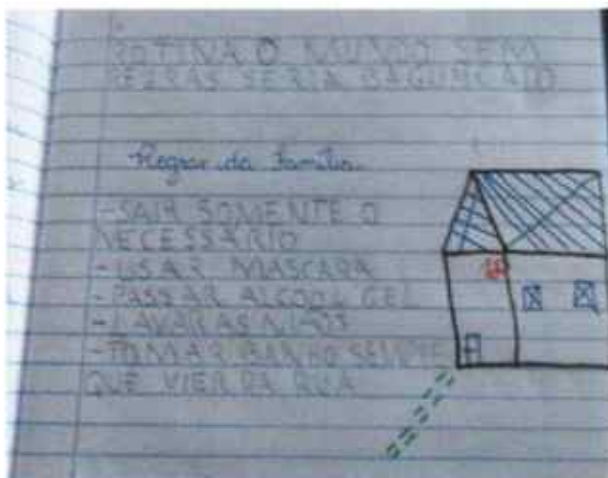 ROTINA O MUNDO SEM
REGRAS SERIA BAGUNÇADO
Regras da Família
-SAIR SOMENTE O
NECESSÁRIO
- USAR MASCARA
- PASSAR ALCOOL GEL
- LAVAR AS MÃOS
- TOMAR BANHO SEMPRE
QUE VIER DA RUA